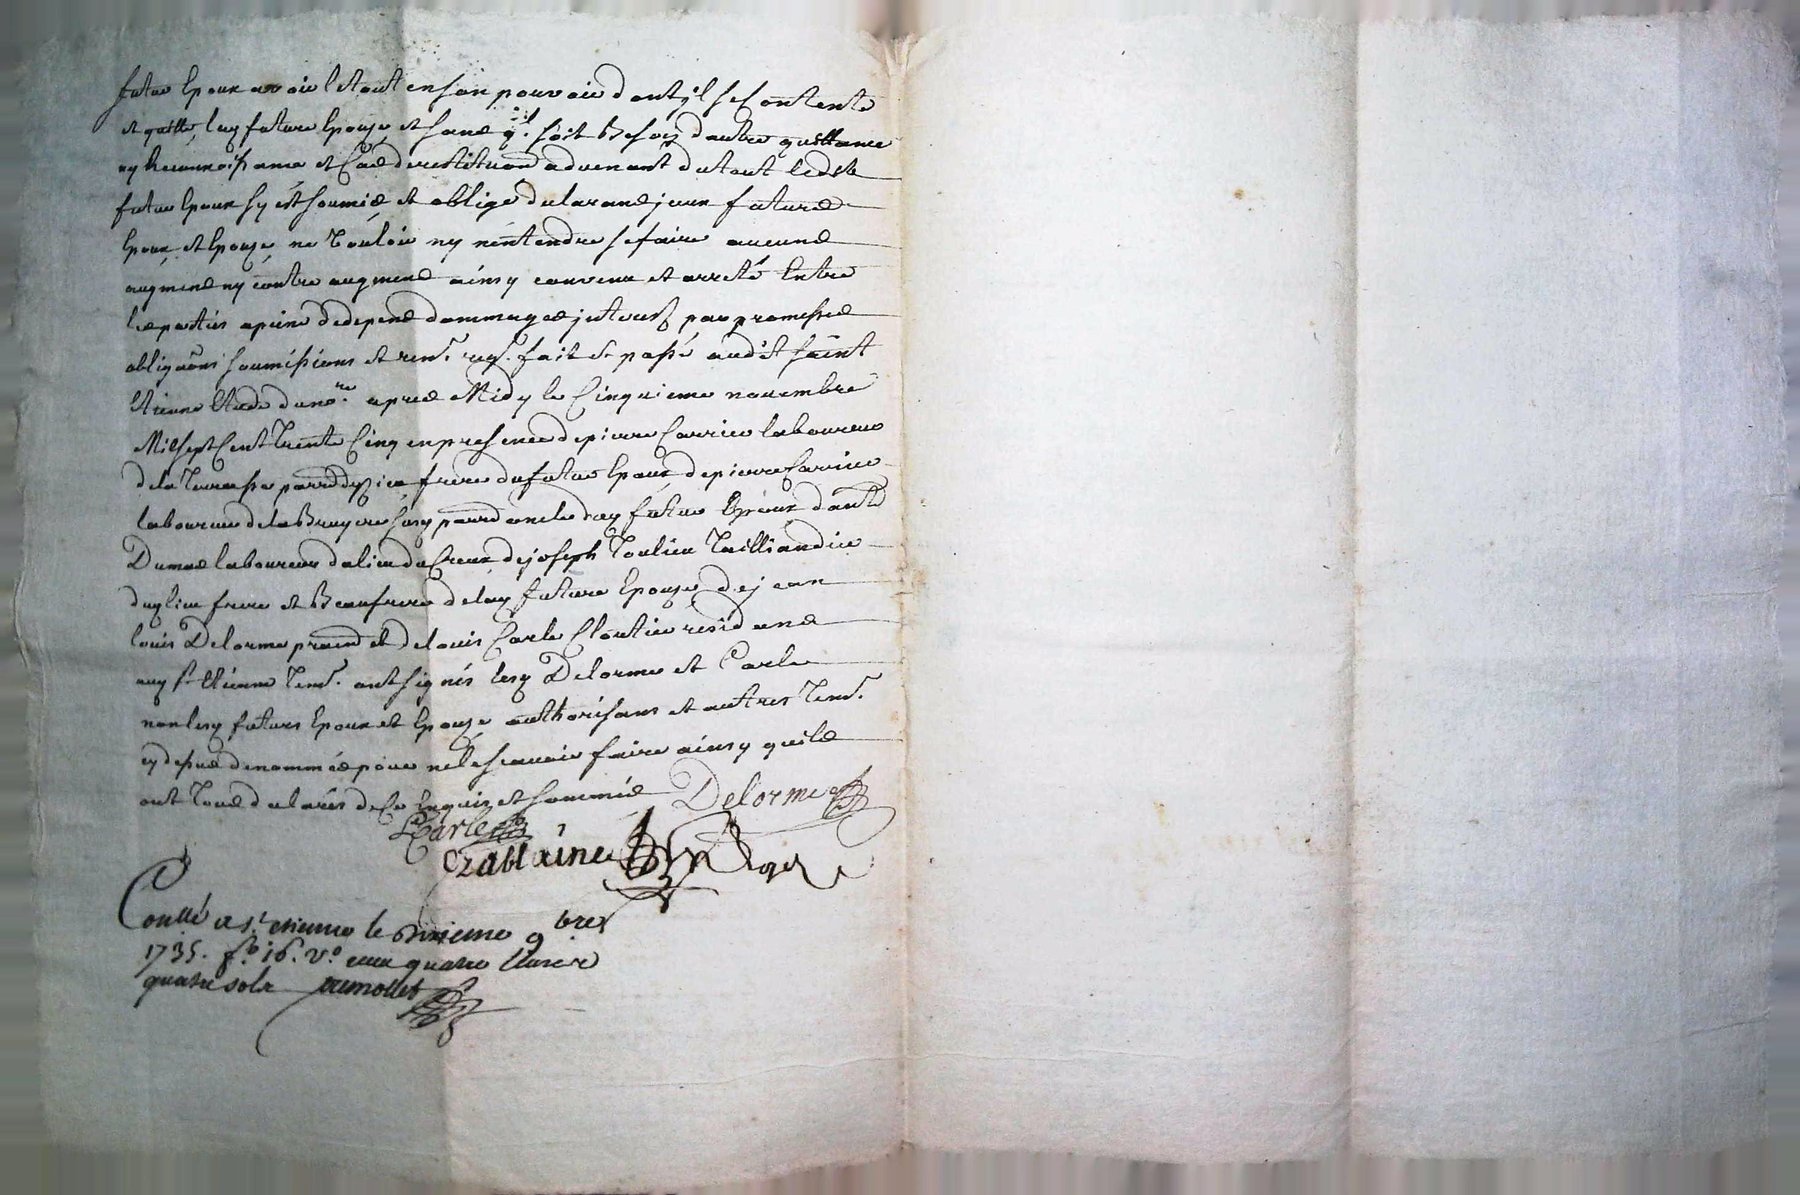 futur Epoux avoir le tout en son pouvoir dont il se contente
et quitte lad future Epouse et sans q.l soit Besoin d'autre quittance
ny Reconnoissance et Cas de restitution advenant du tout ledit
futur Epoux sy est soumis et obligé declarans iceux futurs
Epoux et Epouse ne Vouloir ny n'entendre se faire aucuns
augmens ny contre augmens ainsy convenu et arreté Entre
les parties a peine de depens dommages par promesses
obligaõns soumissions et ren.s fait et passé audit saint
Etienne Etude du no.re apres Midy le Cinquieme novembre
Mil sept Cent Trente Cinq en presence de pierre Carrier laboureur
de la Terrasse frere du futur Epoux de pierre Carrier
laboureur de la Bruyere oncle dud futur Epoux
Dumas laboureur du lieu du Creux de joseph Toulieu Tailliandier
dud lieu frere et Beaufrere de lad future Epouse de jean
louis Delorme et de louis Carle Cloutier residans
aud s.t Etienne Tem.s ont signés lesd Delorme et Carle
non lesd futurs Epoux et Epouse authorisans et autres Tem.s
cy dessus denommés pour ne le scavoir faire ainsy quils
ont Tous declarés de Ce Enquis et sommés Delorme
Carle
Chablaine
Conllé a s.t etienne le sixieme 9bre
1735. f.o 16. v.o quatre livres
quatre sols